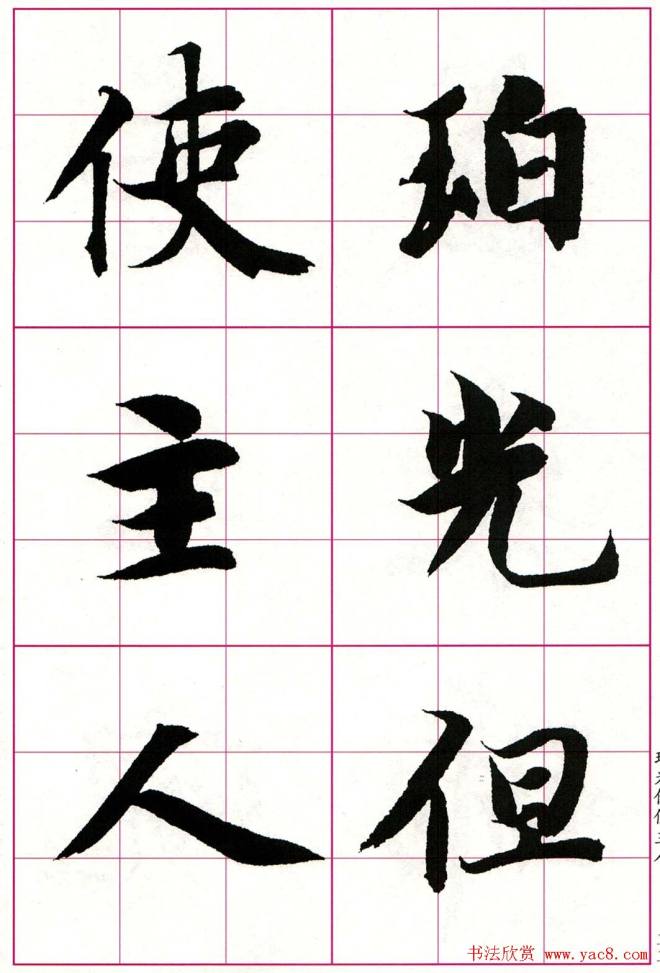 珀光但
使主人
书法欣赏 www.yac8.com